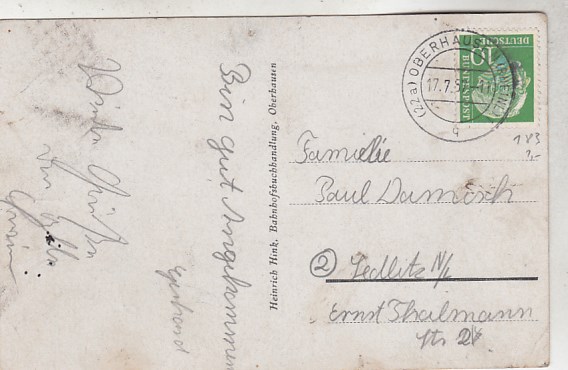 Bin gut Angekommen
Eghard
Viele Grüße
Heinrich Hink, Bahnhofsbuchhandlung, Oberhausen
(22a) OBERHAUSEN (RHEINL)
17.7.5
q
DEUTSCHE
BUNDESPOST
10
Familie
Paul Damisch
② Sedlitz N/L
Ernst Thälmann
Str 24